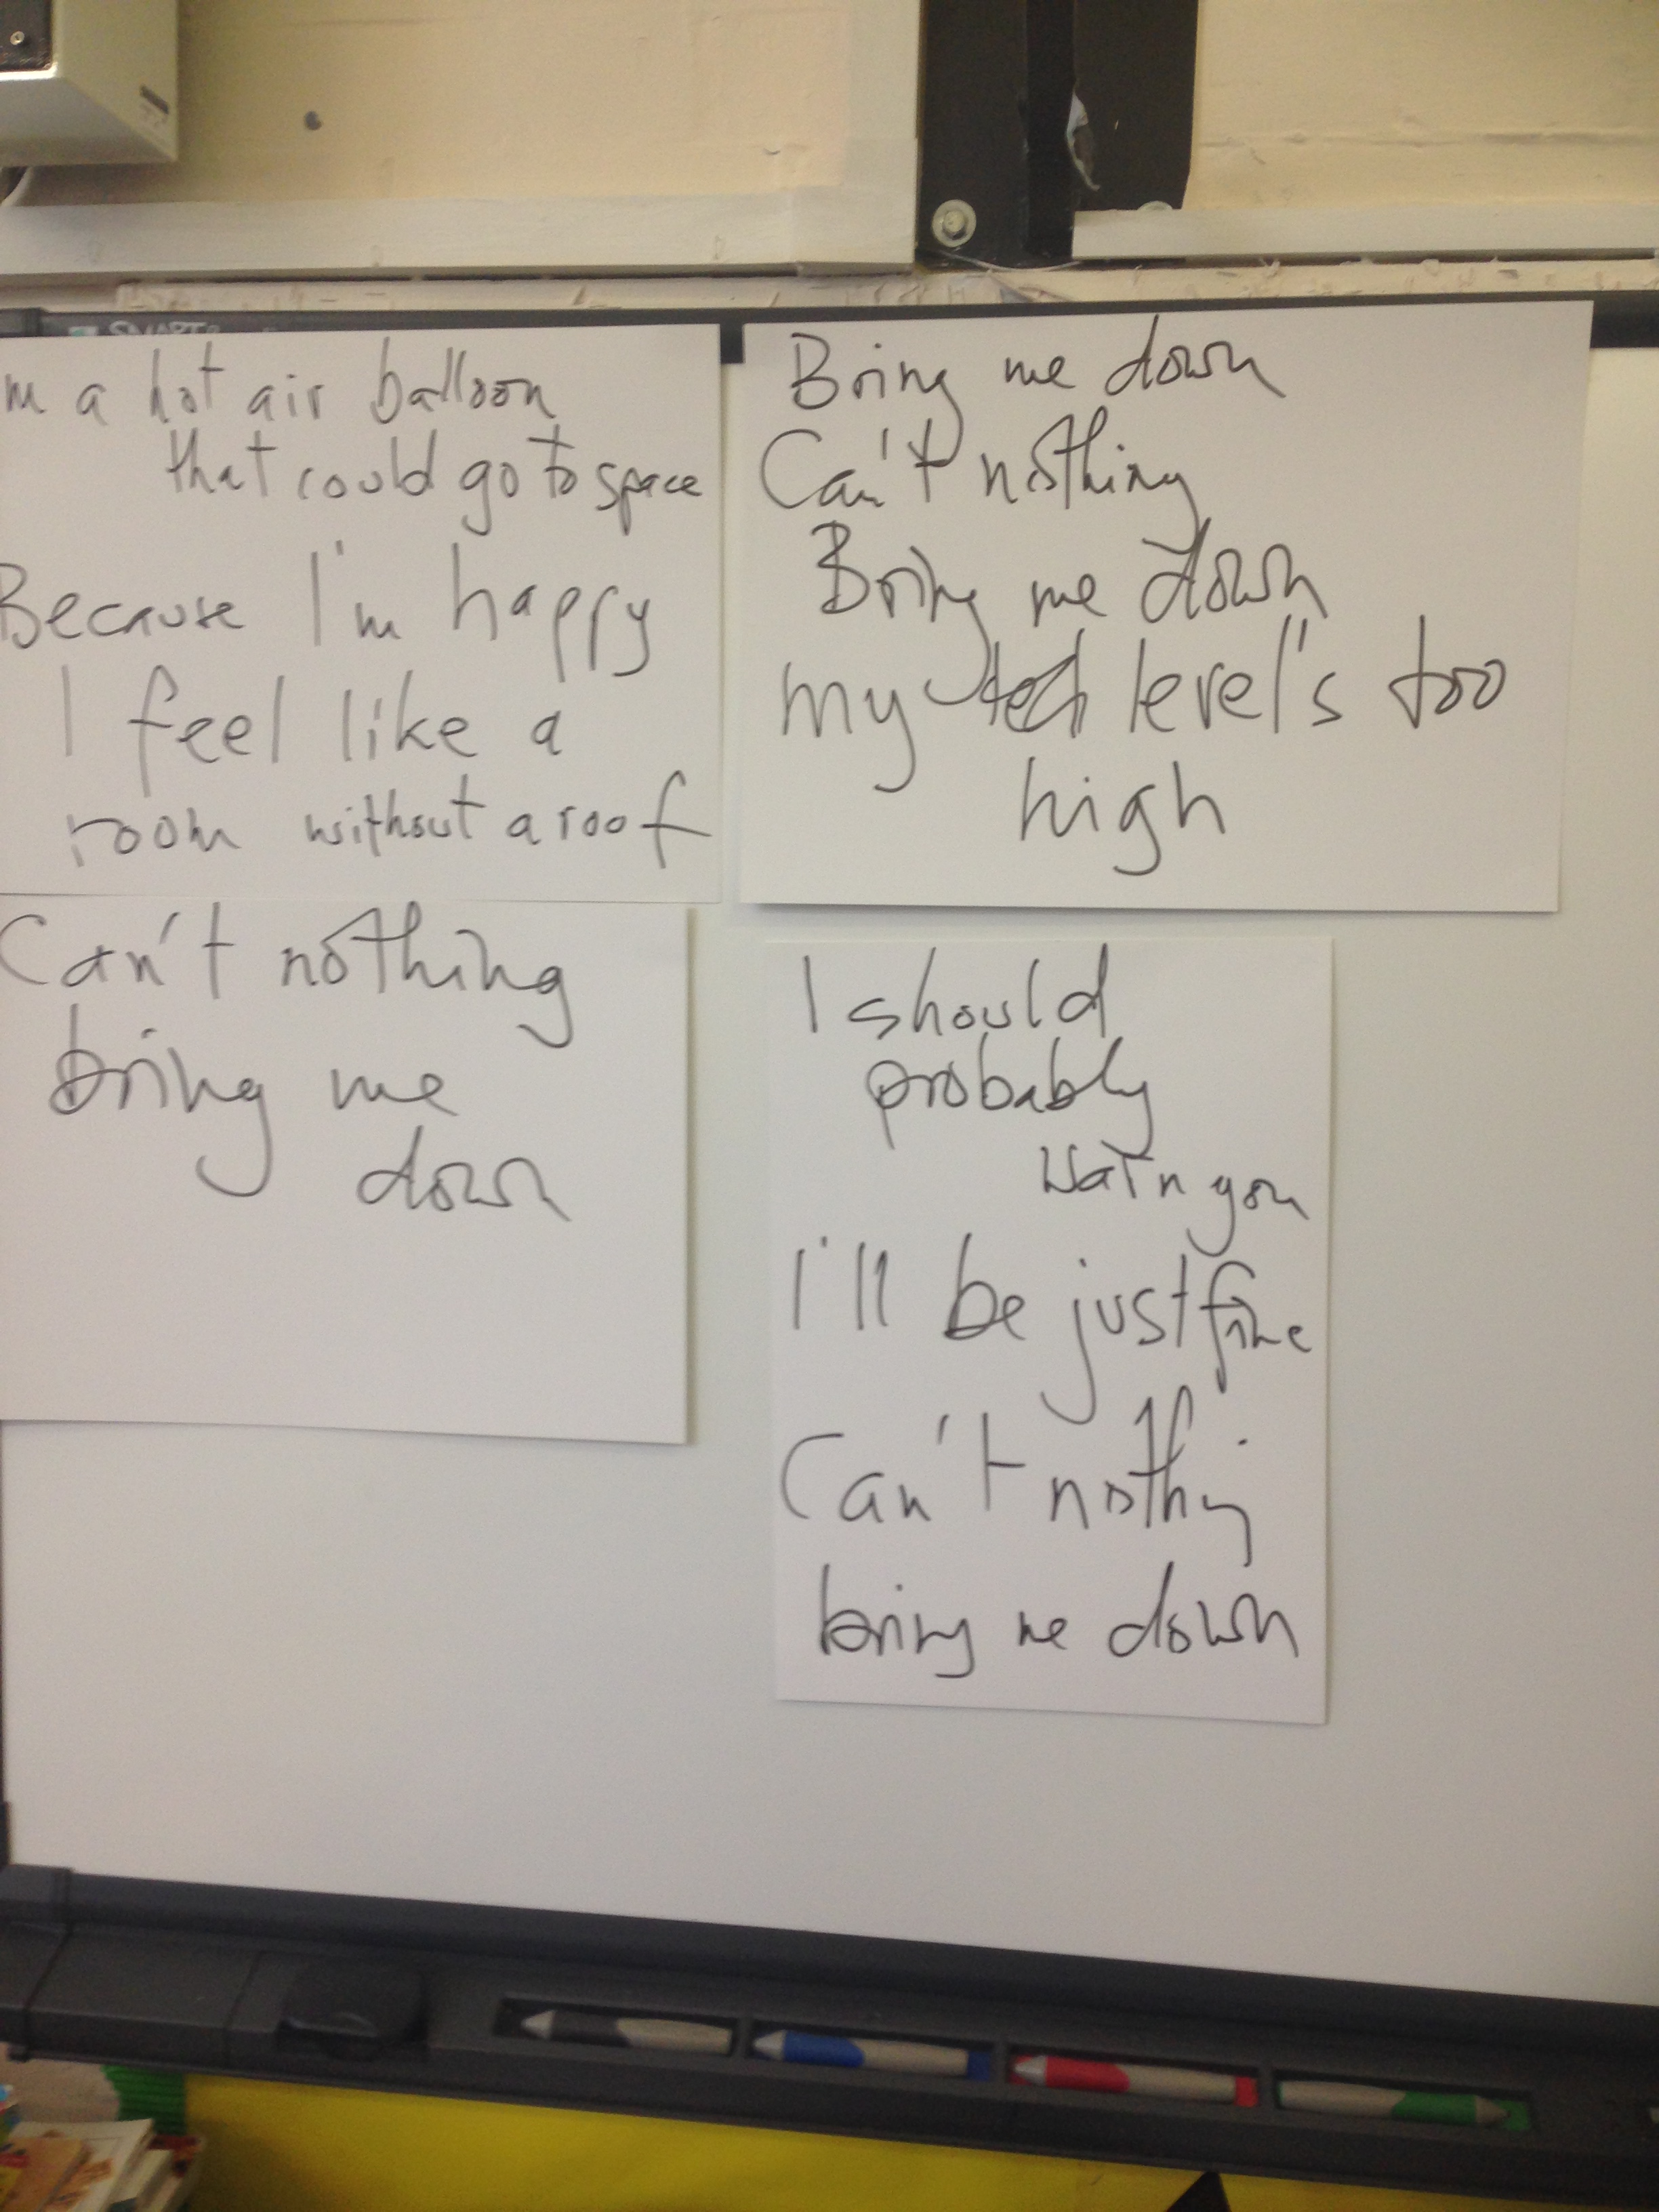 SMART
m a hot air balloon
that could go to space
Because I'm happy
I feel like a
room without a roof
Can't nothing
bring me
down
Bring me down
Can't nothing
Bring me down
my level's too
high
I should
probably
warn you
I'll be just fine
Can't nothing
bring me down